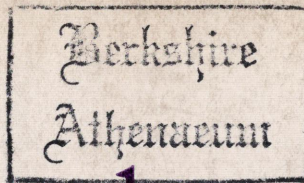 Berkshire
Athenaeum